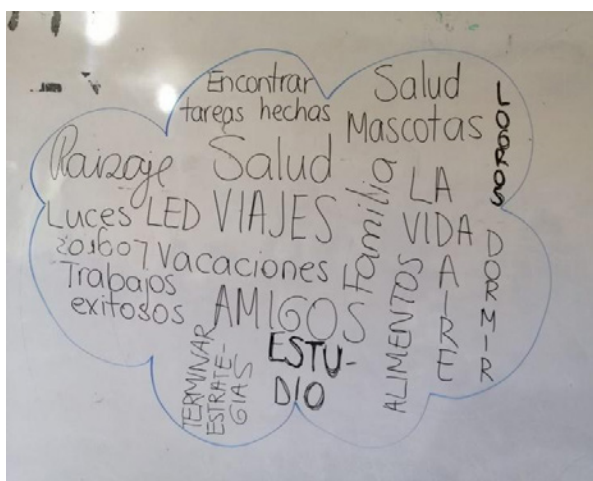 Encontrar
tareas hechas
Salud
Mascotas
LOGROS
Paizaje
Salud
Luces LED
VIAJES
Familia
LA
VIDA
Logros
Vacaciones
Trabajos
exitosos
AMIGOS
ALIMENTOS
AIRE
DORMIR
TERMINAR
ESTRATE-
GIAS
ESTU-
DIO